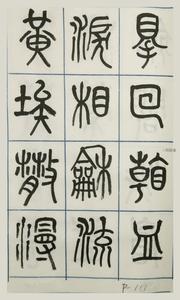 得回看血
淚相龢流
黃埃散漫